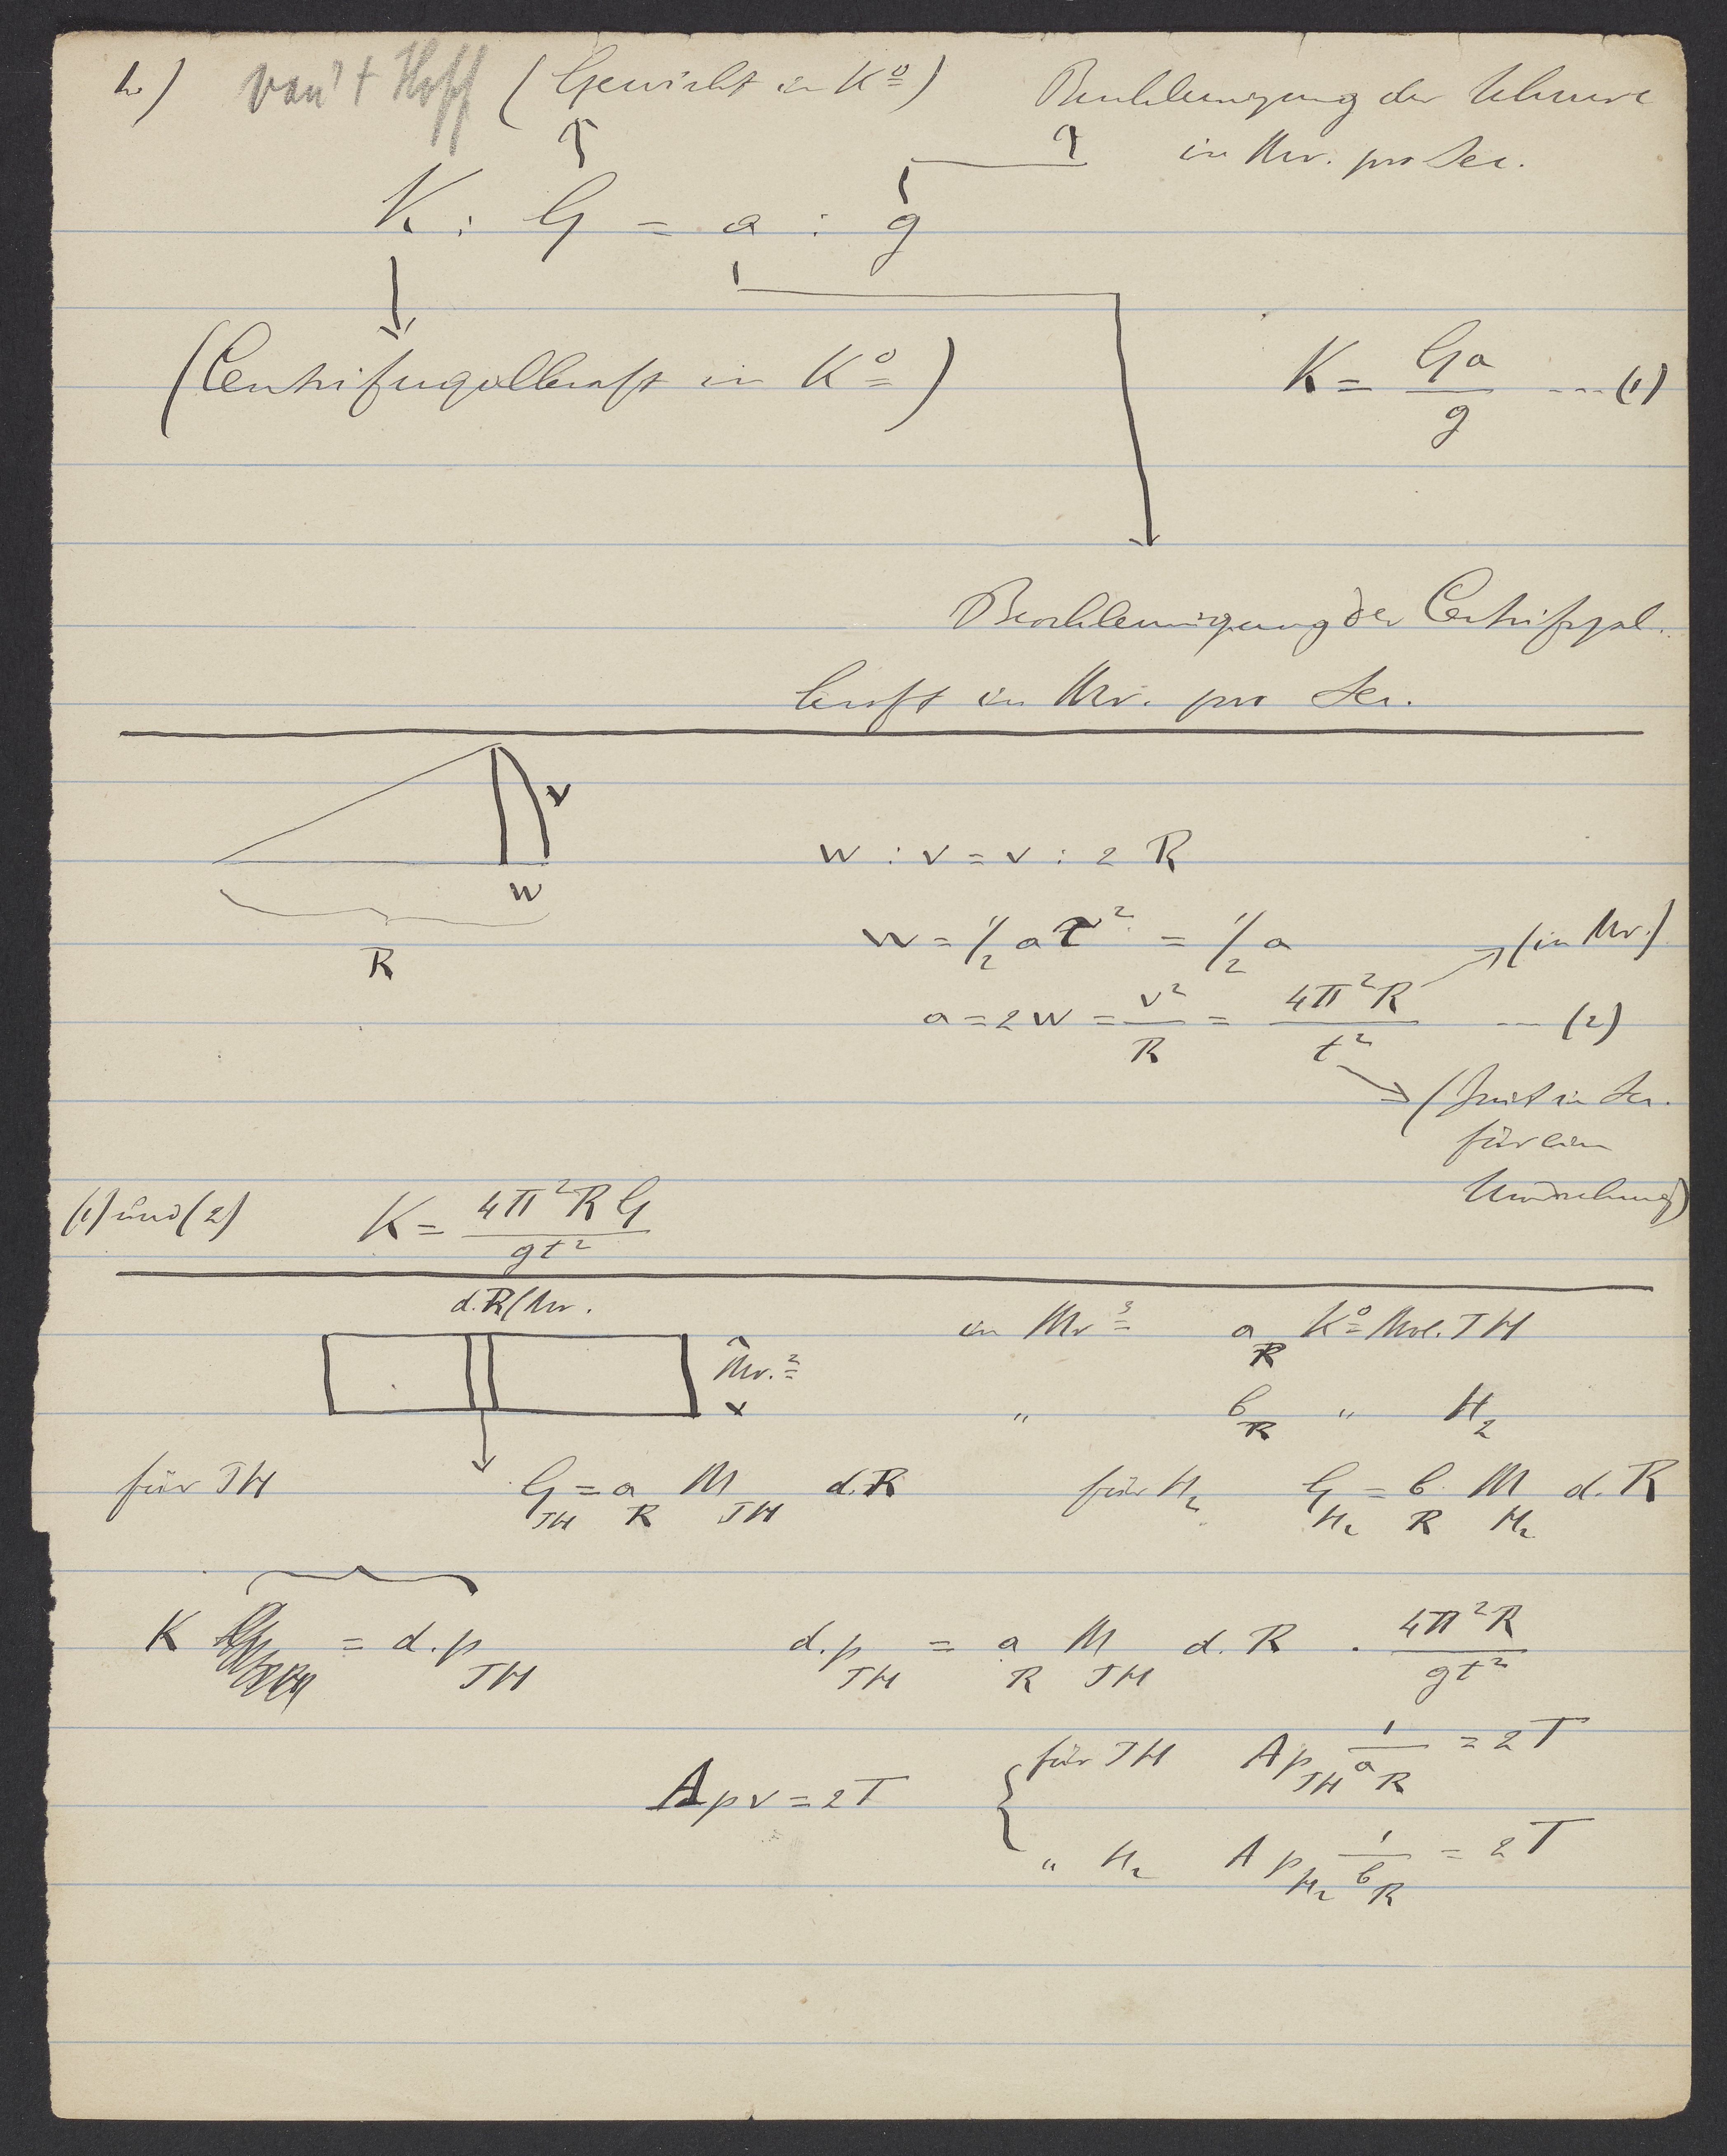 van't Hoff (Gewicht in K⁰) Beschleunigung der Schwere
in Mr. pro Sec.
K : G = a : g
(Centrifugalkraft in K⁰) K = Ga/g --- (1)
Beschleunigung der Centrifugal
kraft in Mr. pro Sec.
v
w : v = v : 2 R
w
R
w = 1/2 a τ² = 1/2 a (in Mr.)
a = 2w = v²/R = 4π²R/t² --- (2)
(Zeit in Sec.
für eine
Umdrehung)
(1) und (2) K = 4π²RG/gt²
d.R (Mr.
in Mr³ a_R K⁰ Mol. JH
Mr.²
" b_R " H₂
für JH G_JH = a_R M_JH d.R für H₂ G_H₂ = b_R M_H₂ d.R
K = d.p_JH d.p_JH = a_R M_JH d.R . 4π²R/gt²
für JH A p_JH 1/a_R = 2T
A p v = 2T
" H₂ A p_H₂ 1/b_R = 2T